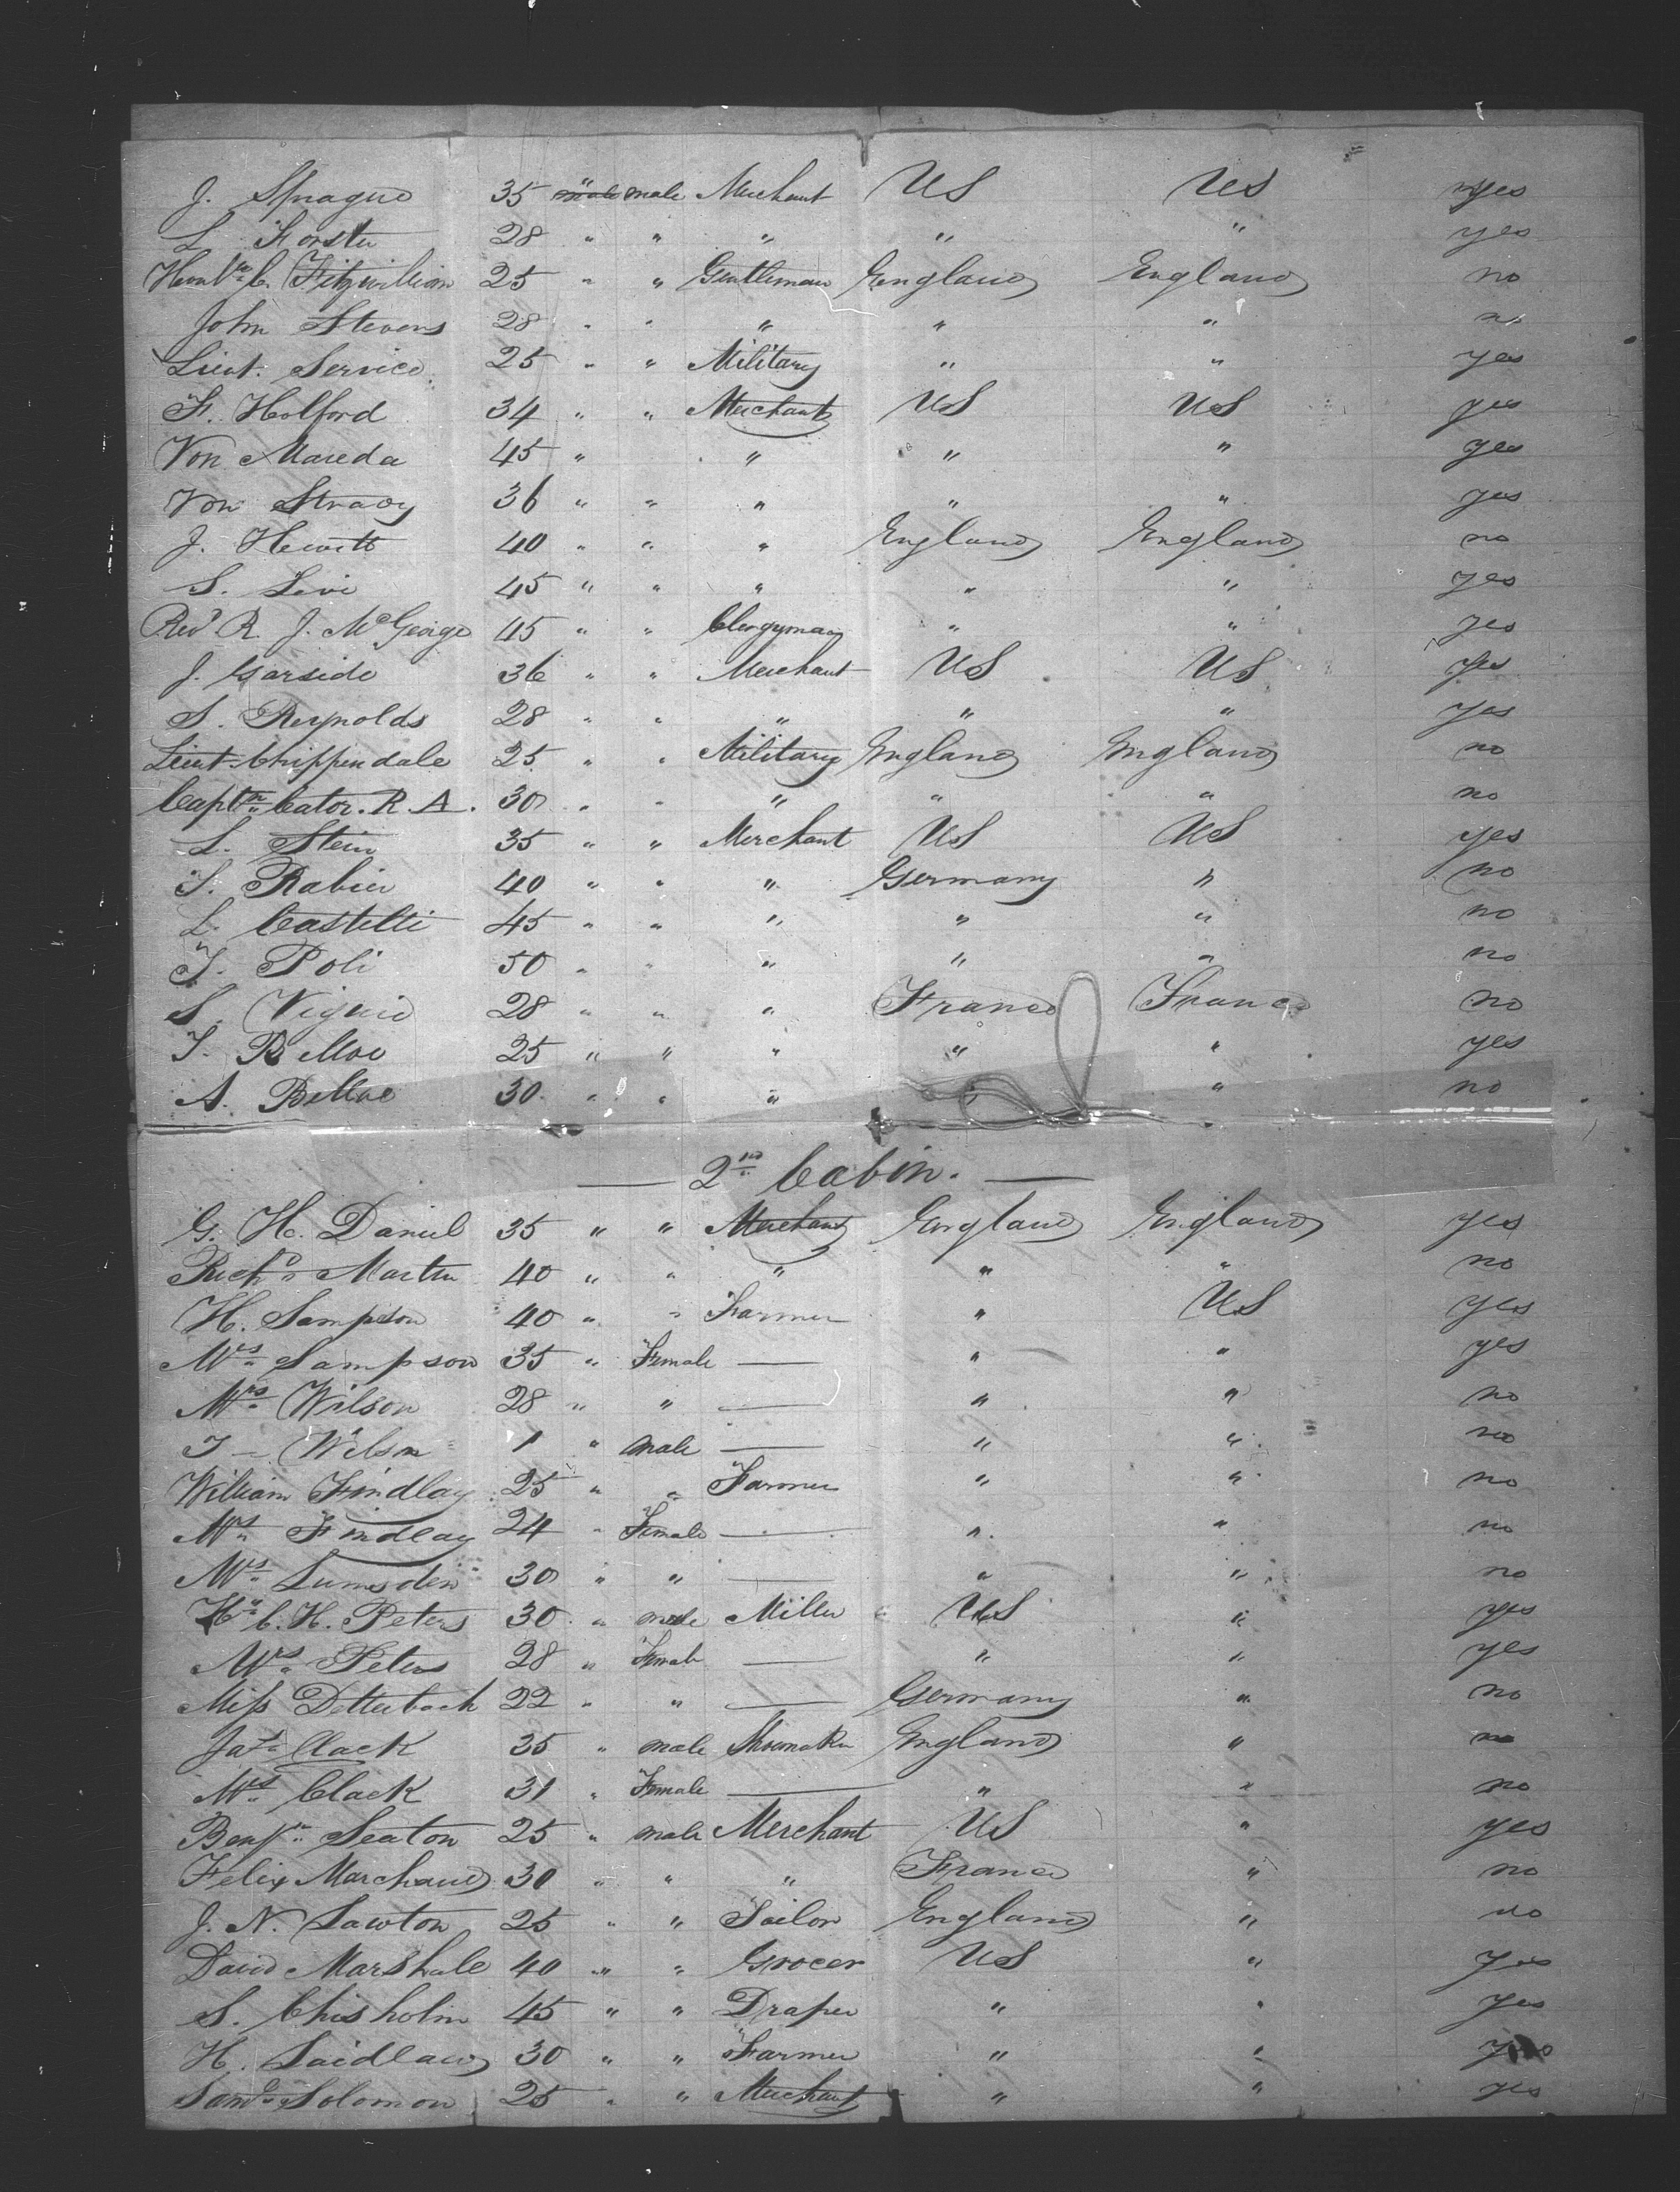 J. Sprague 35 " male Merchant US US yes
L. Forster 28 " " " " " yes
Honble C. Fitzwilliam 25 " " Gentleman England England no
John Stevens 28 " " " " " no
Lieut. Service 25 " " Military " " yes
F. Holford 34 " " Merchant US US yes
Von Mareda 45 " " " " yes
Von Stracy 36 " " " " " yes
J. Hewitt 40 " " " England England no
S. Levi 45 " " " " " yes
Revd R. J. McGeorge 45 " " Clergyman " " yes
J. Garside 36 " " Merchant US US yes
S. Reynolds 28 " " " " " yes
Lieut. Chippendale 25 " " Military England England no
Captn Cator. R. A. 30 " " " " " no
L. Stein 35 " " Merchant US US yes
S. Rabier 40 " " " Germany " no
L. Castelli 45 " " " " " no
J. Poli 50 " " " " " no
S. Viguie 28 " " " France France no
J. Belloc 25 " " " " " yes
A. Belloc 30 " " " " " no
2nd Cabin.
G. H. Daniel 35 " " Merchant England England yes
Richd Martin 40 " " " " " no
H. Sampson 40 " " Farmer " US yes
Mrs Sampson 35 " Female — " " yes
Mrs Wilson 28 " " — " " no
J — Wilson 1 " male — " " no
William Findlay 25 " " Farmer " " no
Mrs Findlay 24 " Female — " " no
Mrs Lumsden 30 " " — " " no
C. H. Peters 30 " male Miller US " yes
Mrs Peters 28 " Female — " " yes
Miss Detterbach 22 " " — Germany " no
Jas Clack 35 " male Shoemaker England " no
Mrs Clack 31 " Female — " " no
Benjn Seaton 25 " male Merchant US " yes
Felix Marchand 30 " " " France " no
J. N. Lawton 25 " " Tailor England " no
David Marshale 40 " " Grocer US " yes
S. Chisholm 45 " " Draper " " yes
H. Laidlaw 30 " " Farmer " " yes
Saml Solomon 25 " " Merchant " " yes